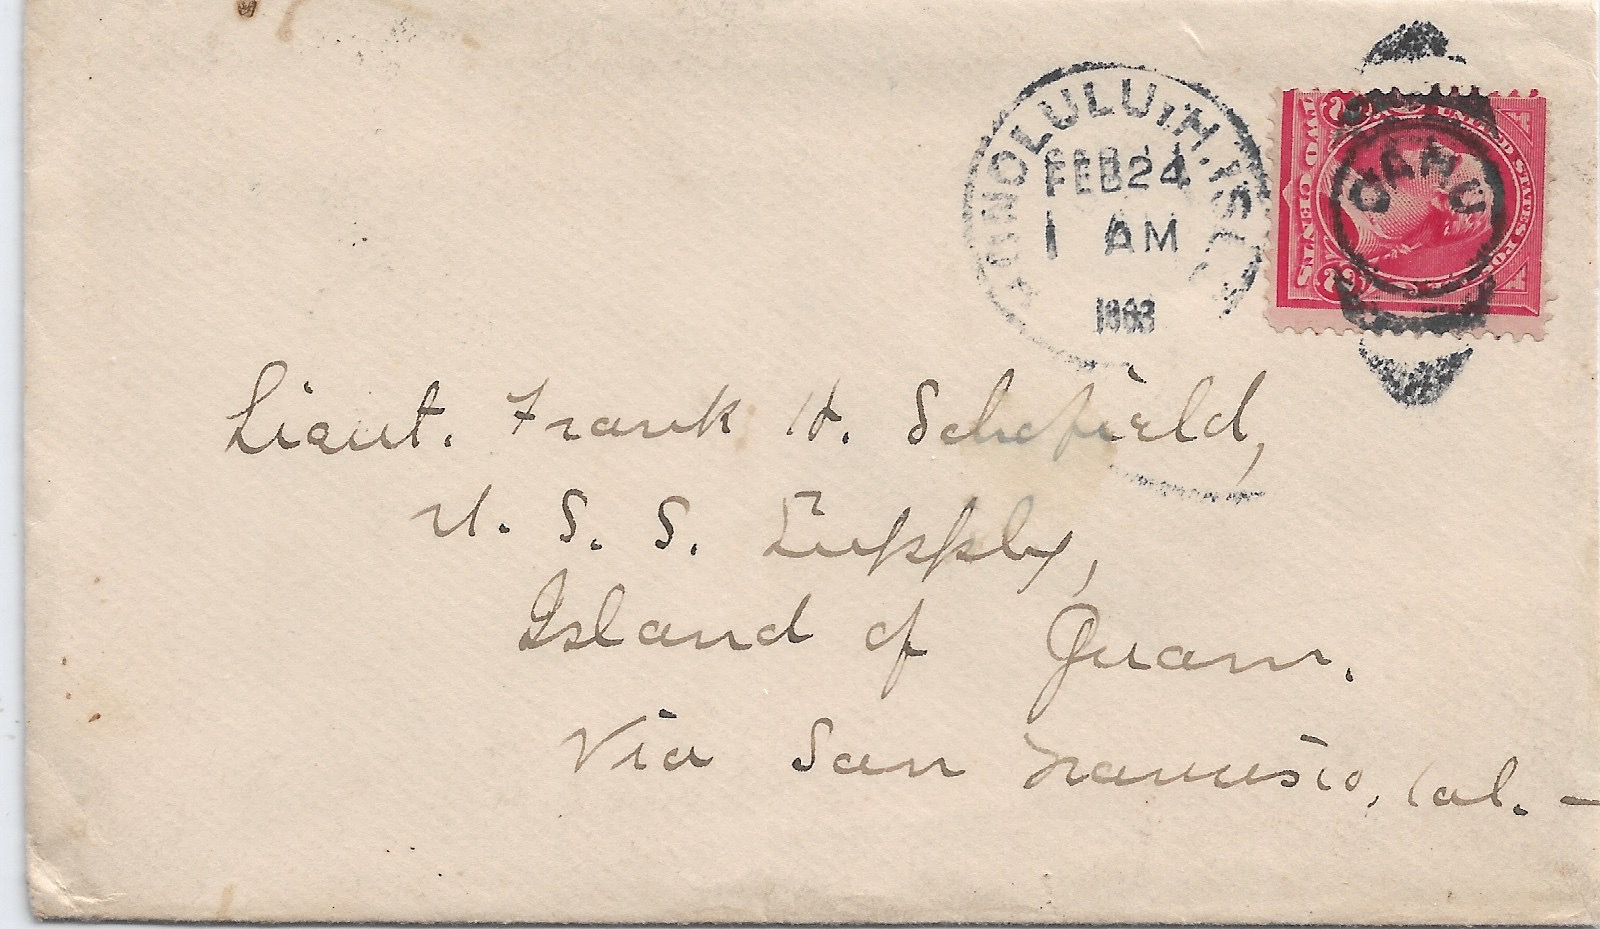 HONOLULU, H. ISL
FEB 24
1 AM
1903
OAHU
UNITED STATES POS
TWO CENTS
2 2
Lieut. Frank H. Schofield,
U. S. S. Supply,
Island of Guam.
Via San Francisco, Cal. —